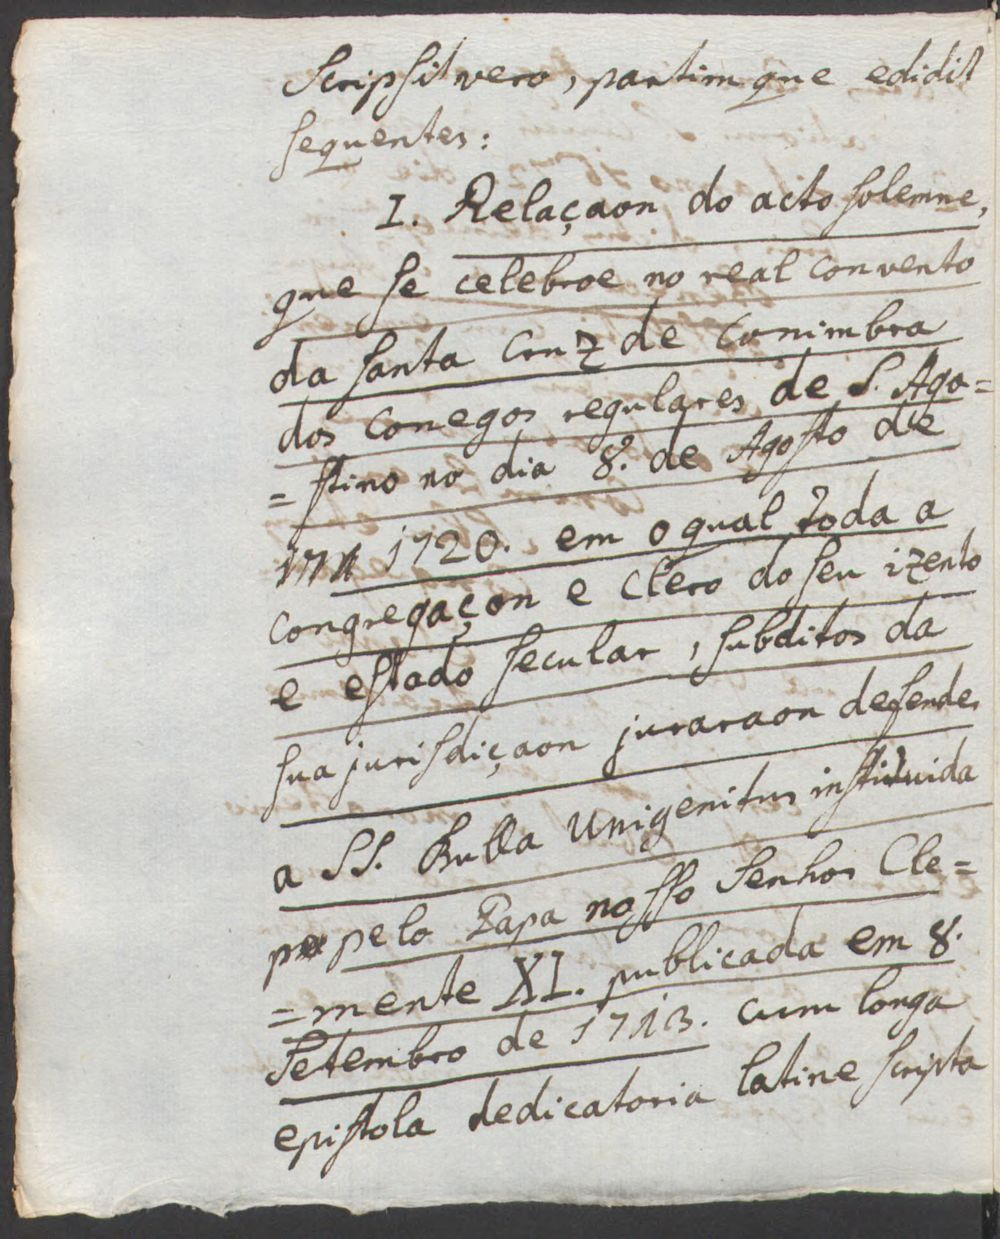 Scripsit vero, partimque edidit
sequentes:
I. Relaçaon do acto solemne,
que se celebroe no real convento
da santa Cruz de Conimbra
dos Conegos regulares de S. Ago=
=stino no dia 8. de Agosto de
1720. em o qual toda a
Congregaçon e Clero do seu izento
e estado secular, subditos da
sua jurisdiçaon juraraon defender
a SS. Bulla Unigenitus instituida
pelo Papa nosso Senhor Cle=
=mente XI. publicada em 8.
Setembro de 1713. cum longa
epistola dedicatoria latine scripta